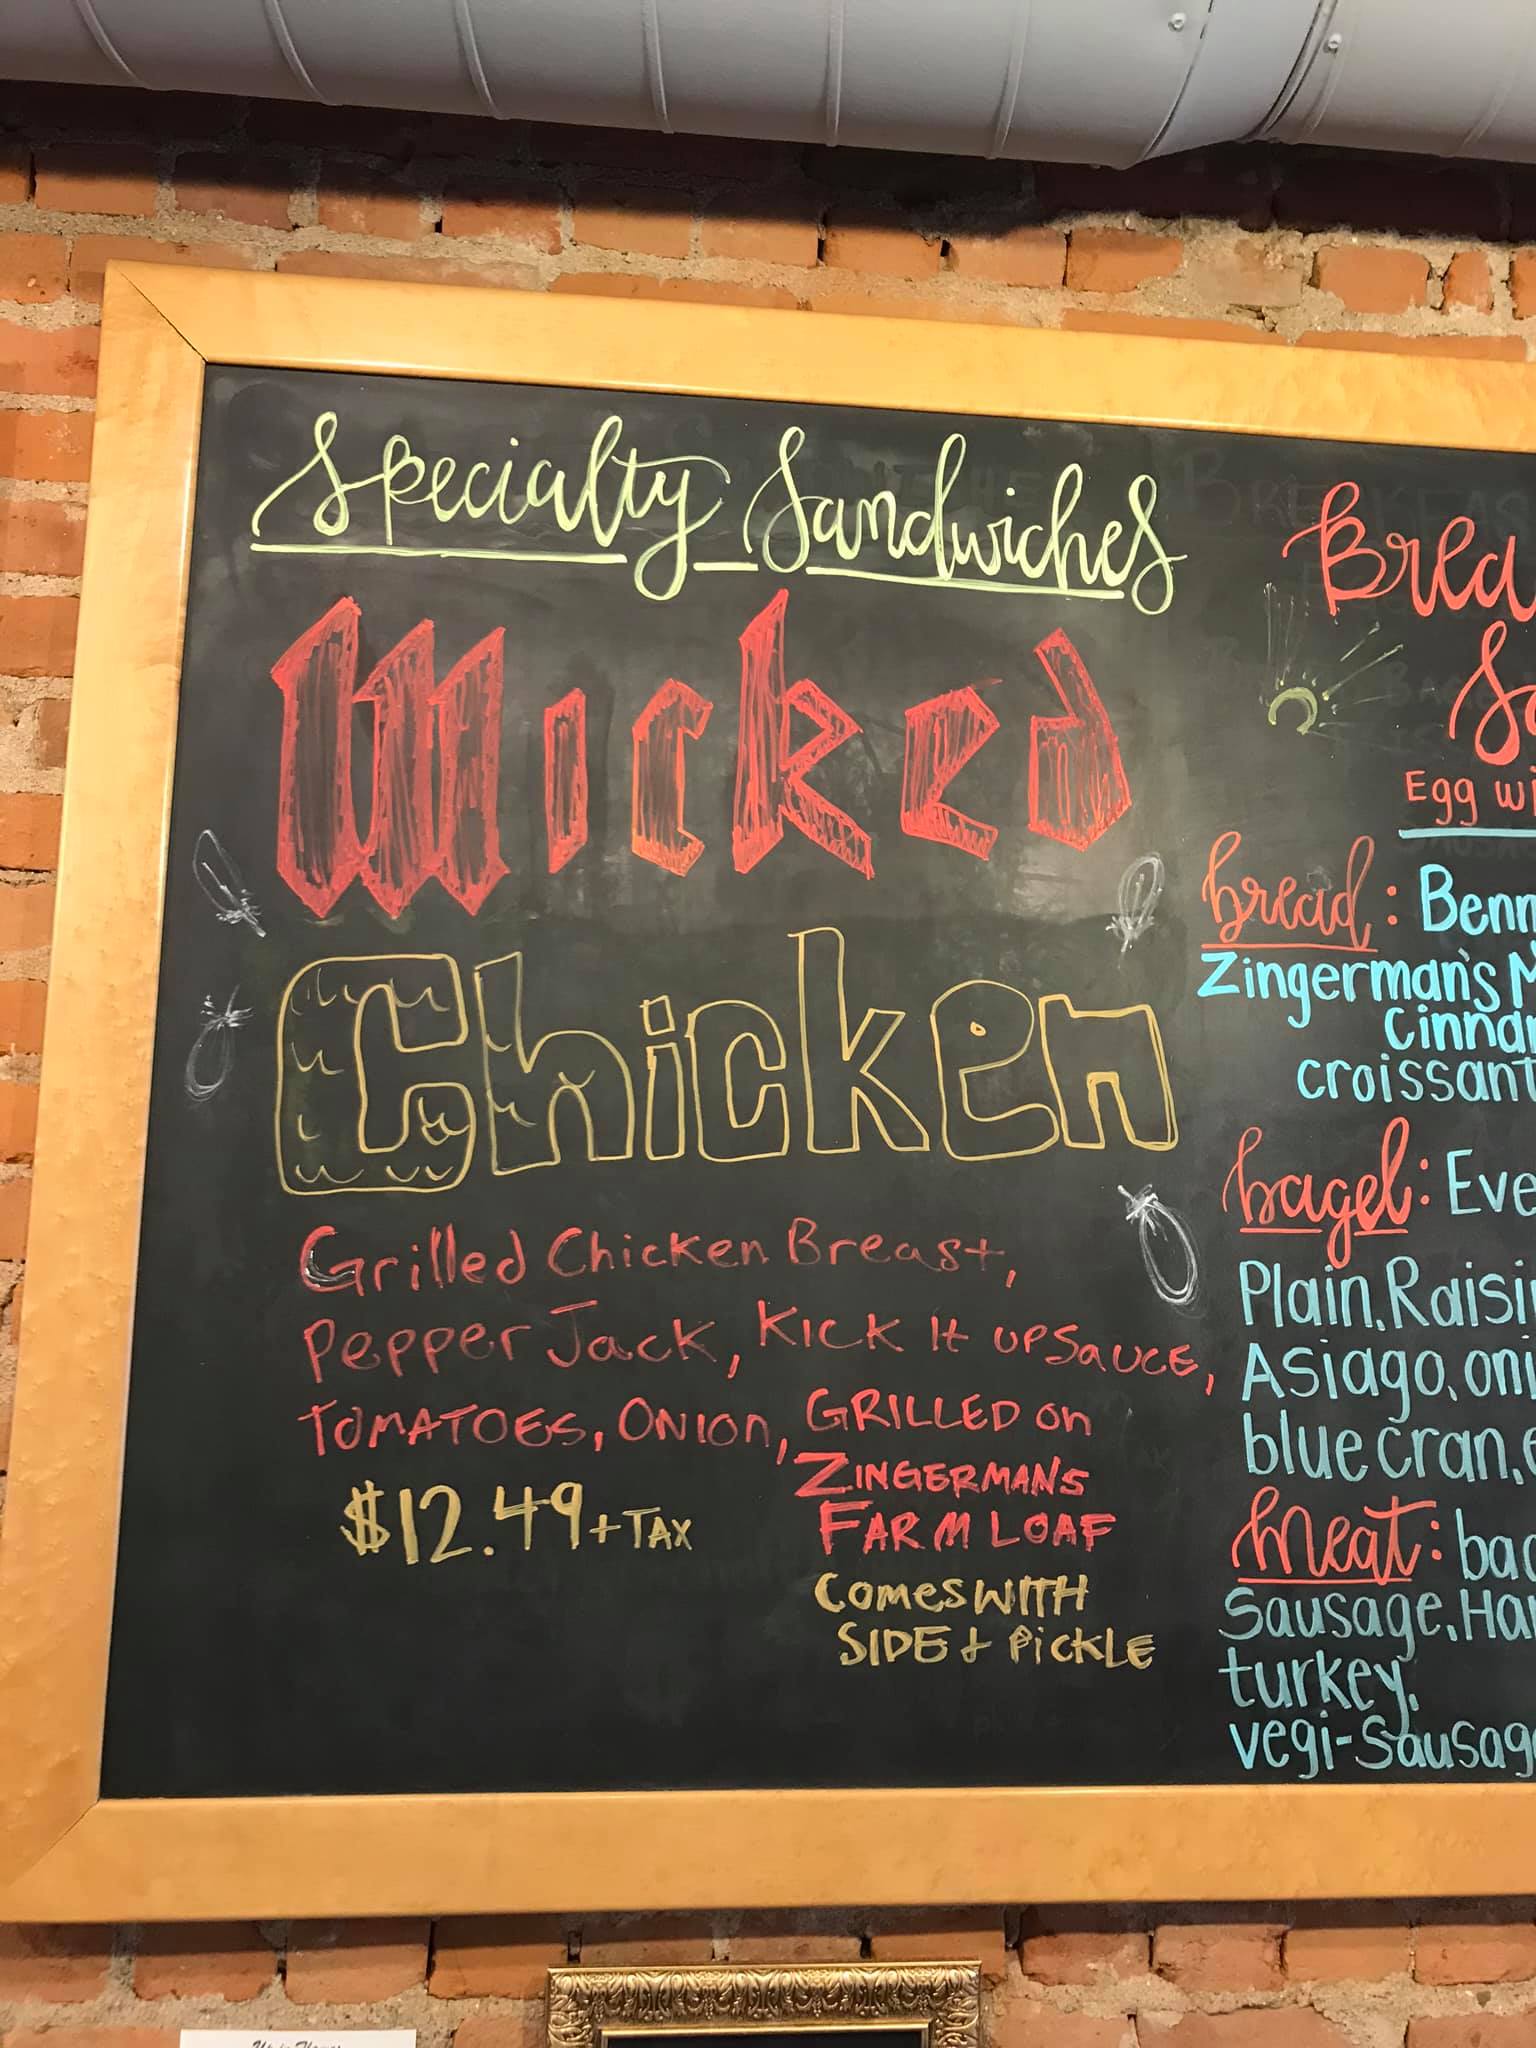 Specialty Sandwiches
Wicked
Chicken
Grilled Chicken Breast,
Pepper Jack, Kick It up Sauce,
TOMATOES, ONION, GRILLED on
ZINGERMAN'S
FARM LOAF
$12.49 + TAX
COMES WITH
SIDE + PICKLE
Brea
Sa
Egg wi
bread: Benn
Zingerman's M
Cinna
croissant
bagel: Eve
Plain, Raisi
Asiago, oni
blue cran, e
meat: bac
Sausage, Ha
turkey,
vegi-Sausag